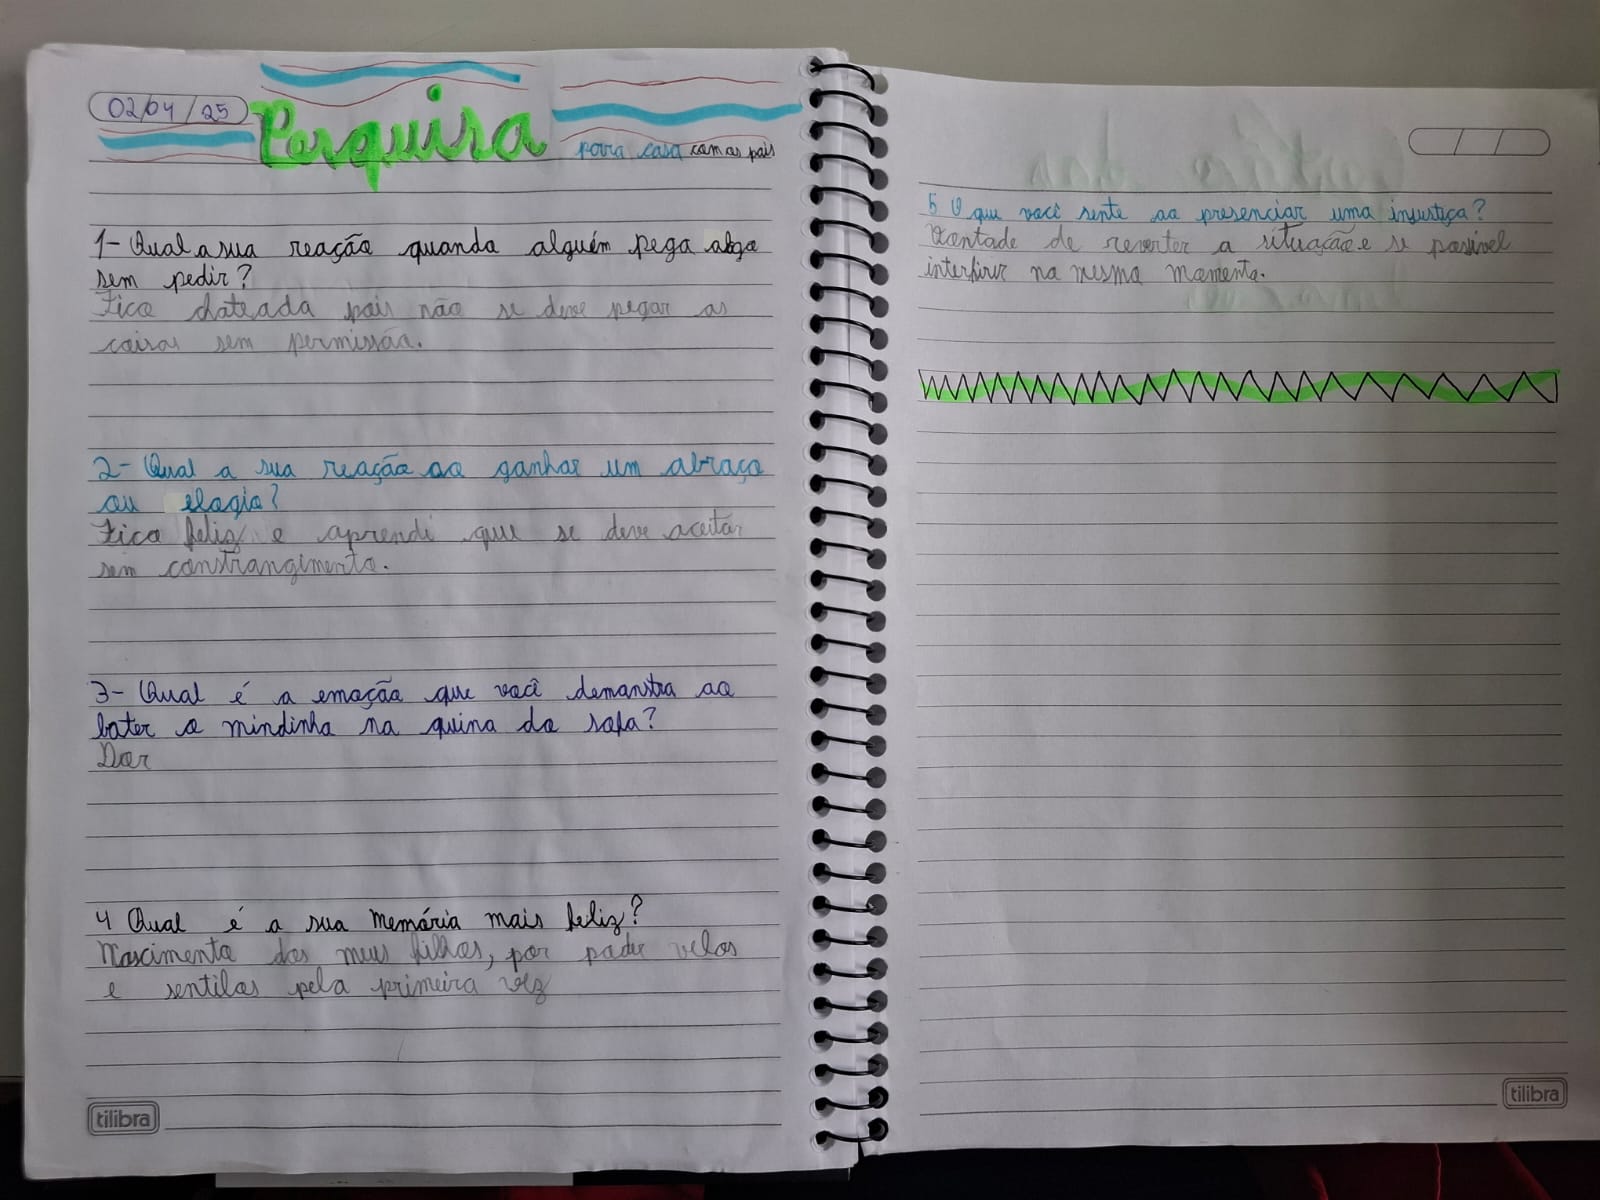 02/04/25
Pesquisa para casa com os pais
1- Qual a sua reação quando alguém pega algo
sem pedir?
Fico chateada pois não se deve pegar as
coisas sem permissão.
2- Qual a sua reação ao ganhar um abraço
ou elogio?
Fico feliz e aprendi que se deve aceitar
sem constrangimento.
3- Qual é a emoção que você demonstra ao
bater o mindinho na quina do sofa?
Dor
4 Qual é a sua memória mais feliz?
Nascimento dos meus filhos, por poder velos
e sentilos pela primeira vez
tilibra
5 O que você sente ao presenciar uma injustiça?
Vontade de reverter a situação e se possivel
interfirir na mesmo momento.
tilibra